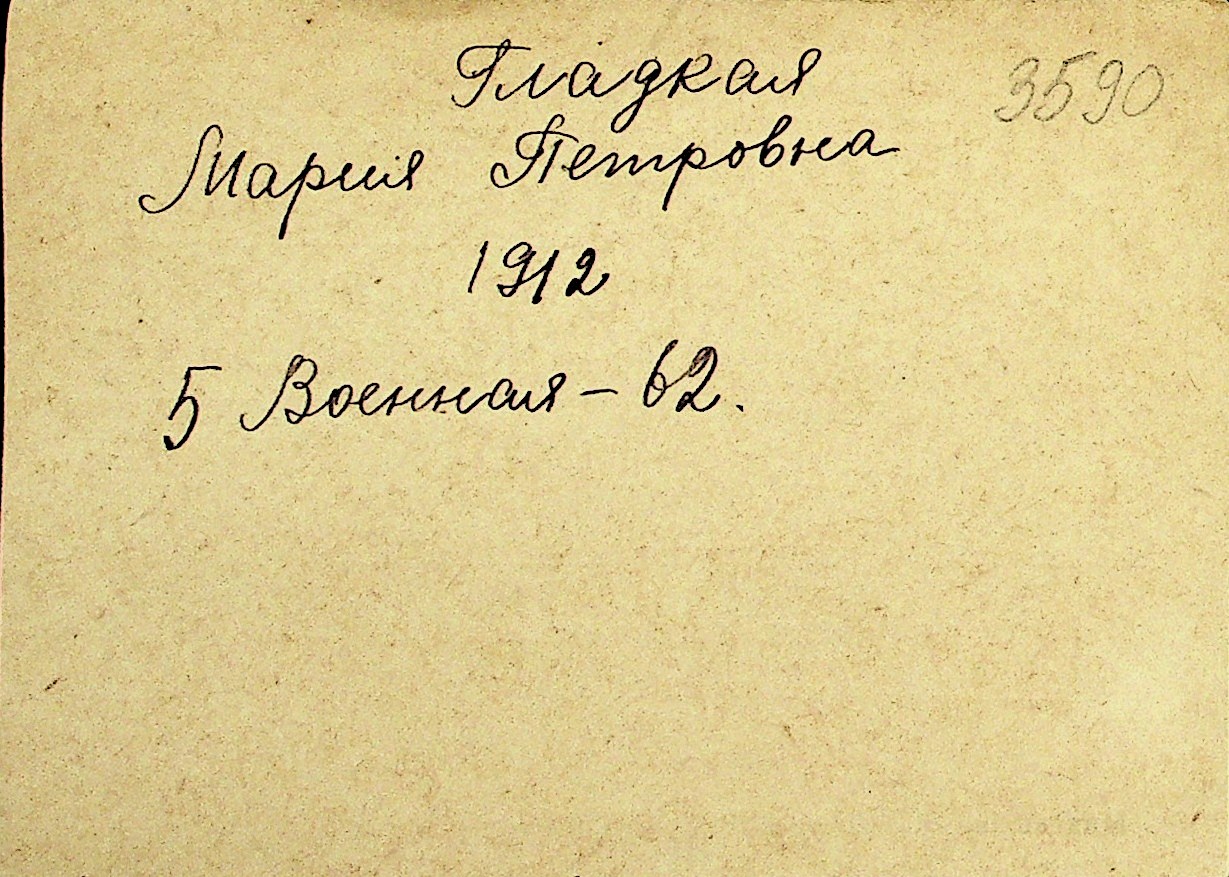 Гладкая 3590
Мария Петровна
1912
5 Военная - 62.